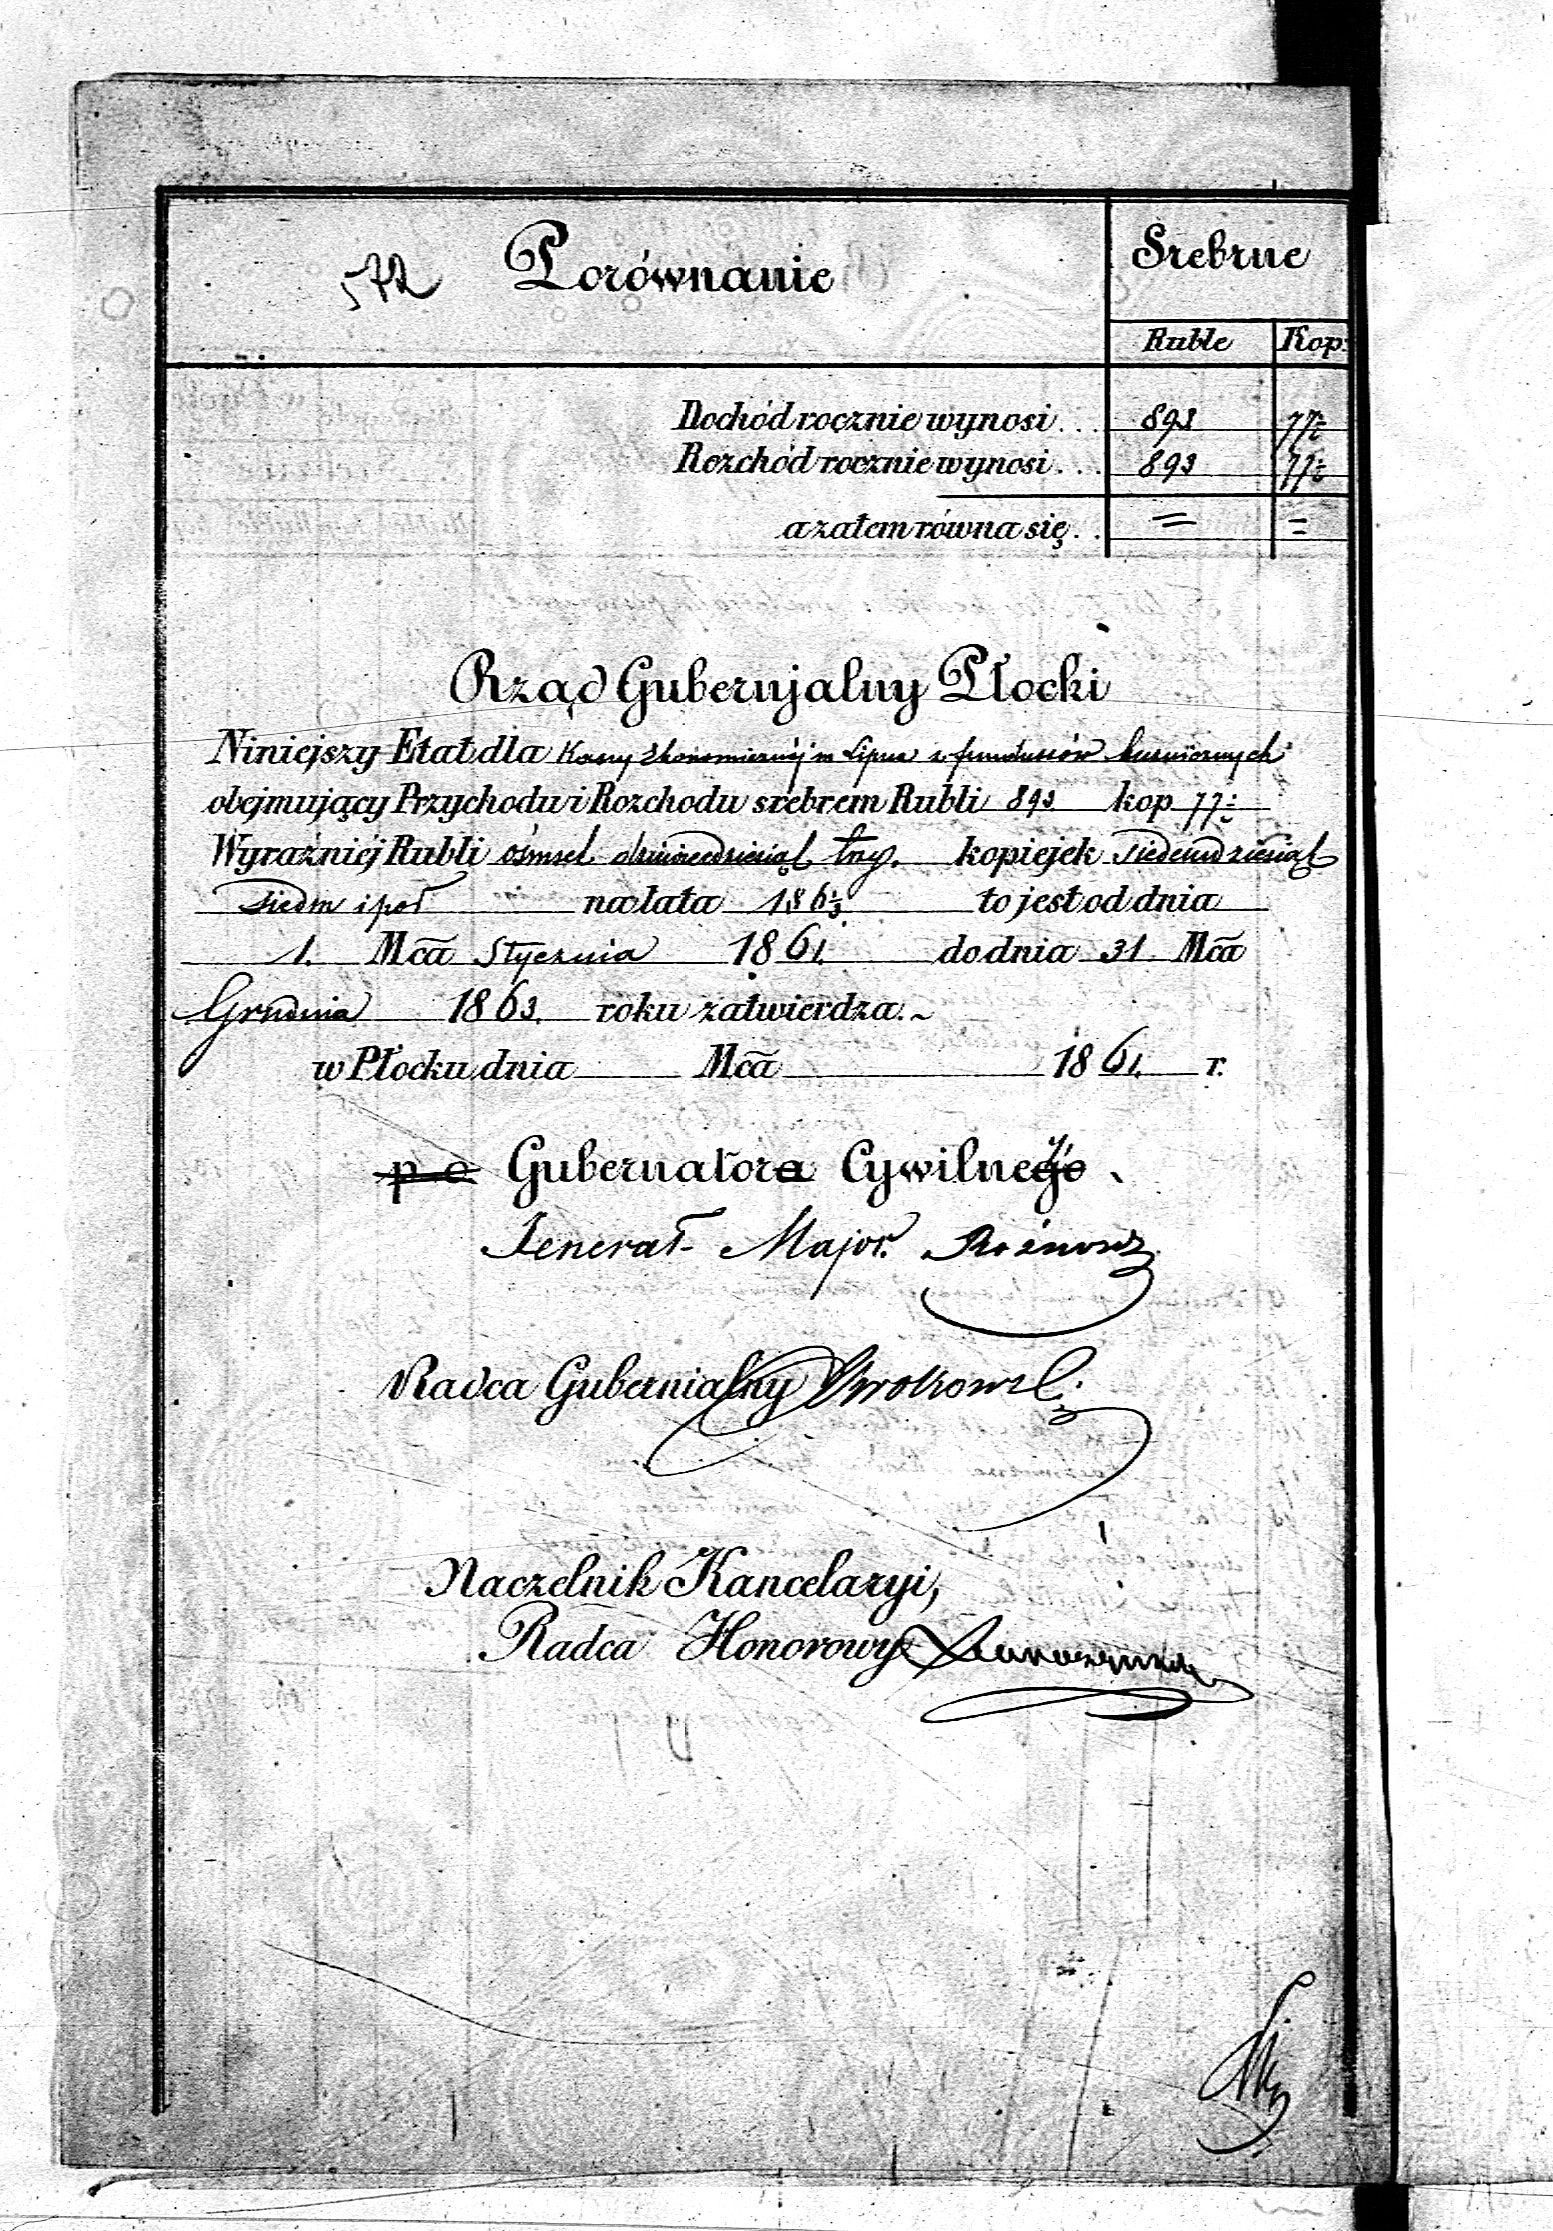 572 Porównanie
Srebrne
Ruble Kop:
Dochód rocznie wynosi . . . 893 77½
Rozchód rocznie wynosi . . . 893 77½
a zatem równa się . . = =
Rząd Gubernjalny Płocki
Niniejszy Etat dla Kasy Ekonomicznéj m Lipna z funduszów
obejmujący Przychodu i Rozchodu srebrem Rubli 893 kop 77½
Wyraźniéj Rubli ośmset dziewiedziesiąt trzy. kopiejek siedemdziesiąt
siedm i poł na lata 186⅓ to jest od dnia
1. Mca Stycznia 1861. do dnia 31 Mca
Grudnia 1863. roku zatwierdza.~
w Płocku dnia Mca 1861. r.
p.o. Gubernatora Cywilnego
Jenerał Major. Rożnow
Radca Gubernialny
Naczelnik Kancelaryi,
Radca Honorowy